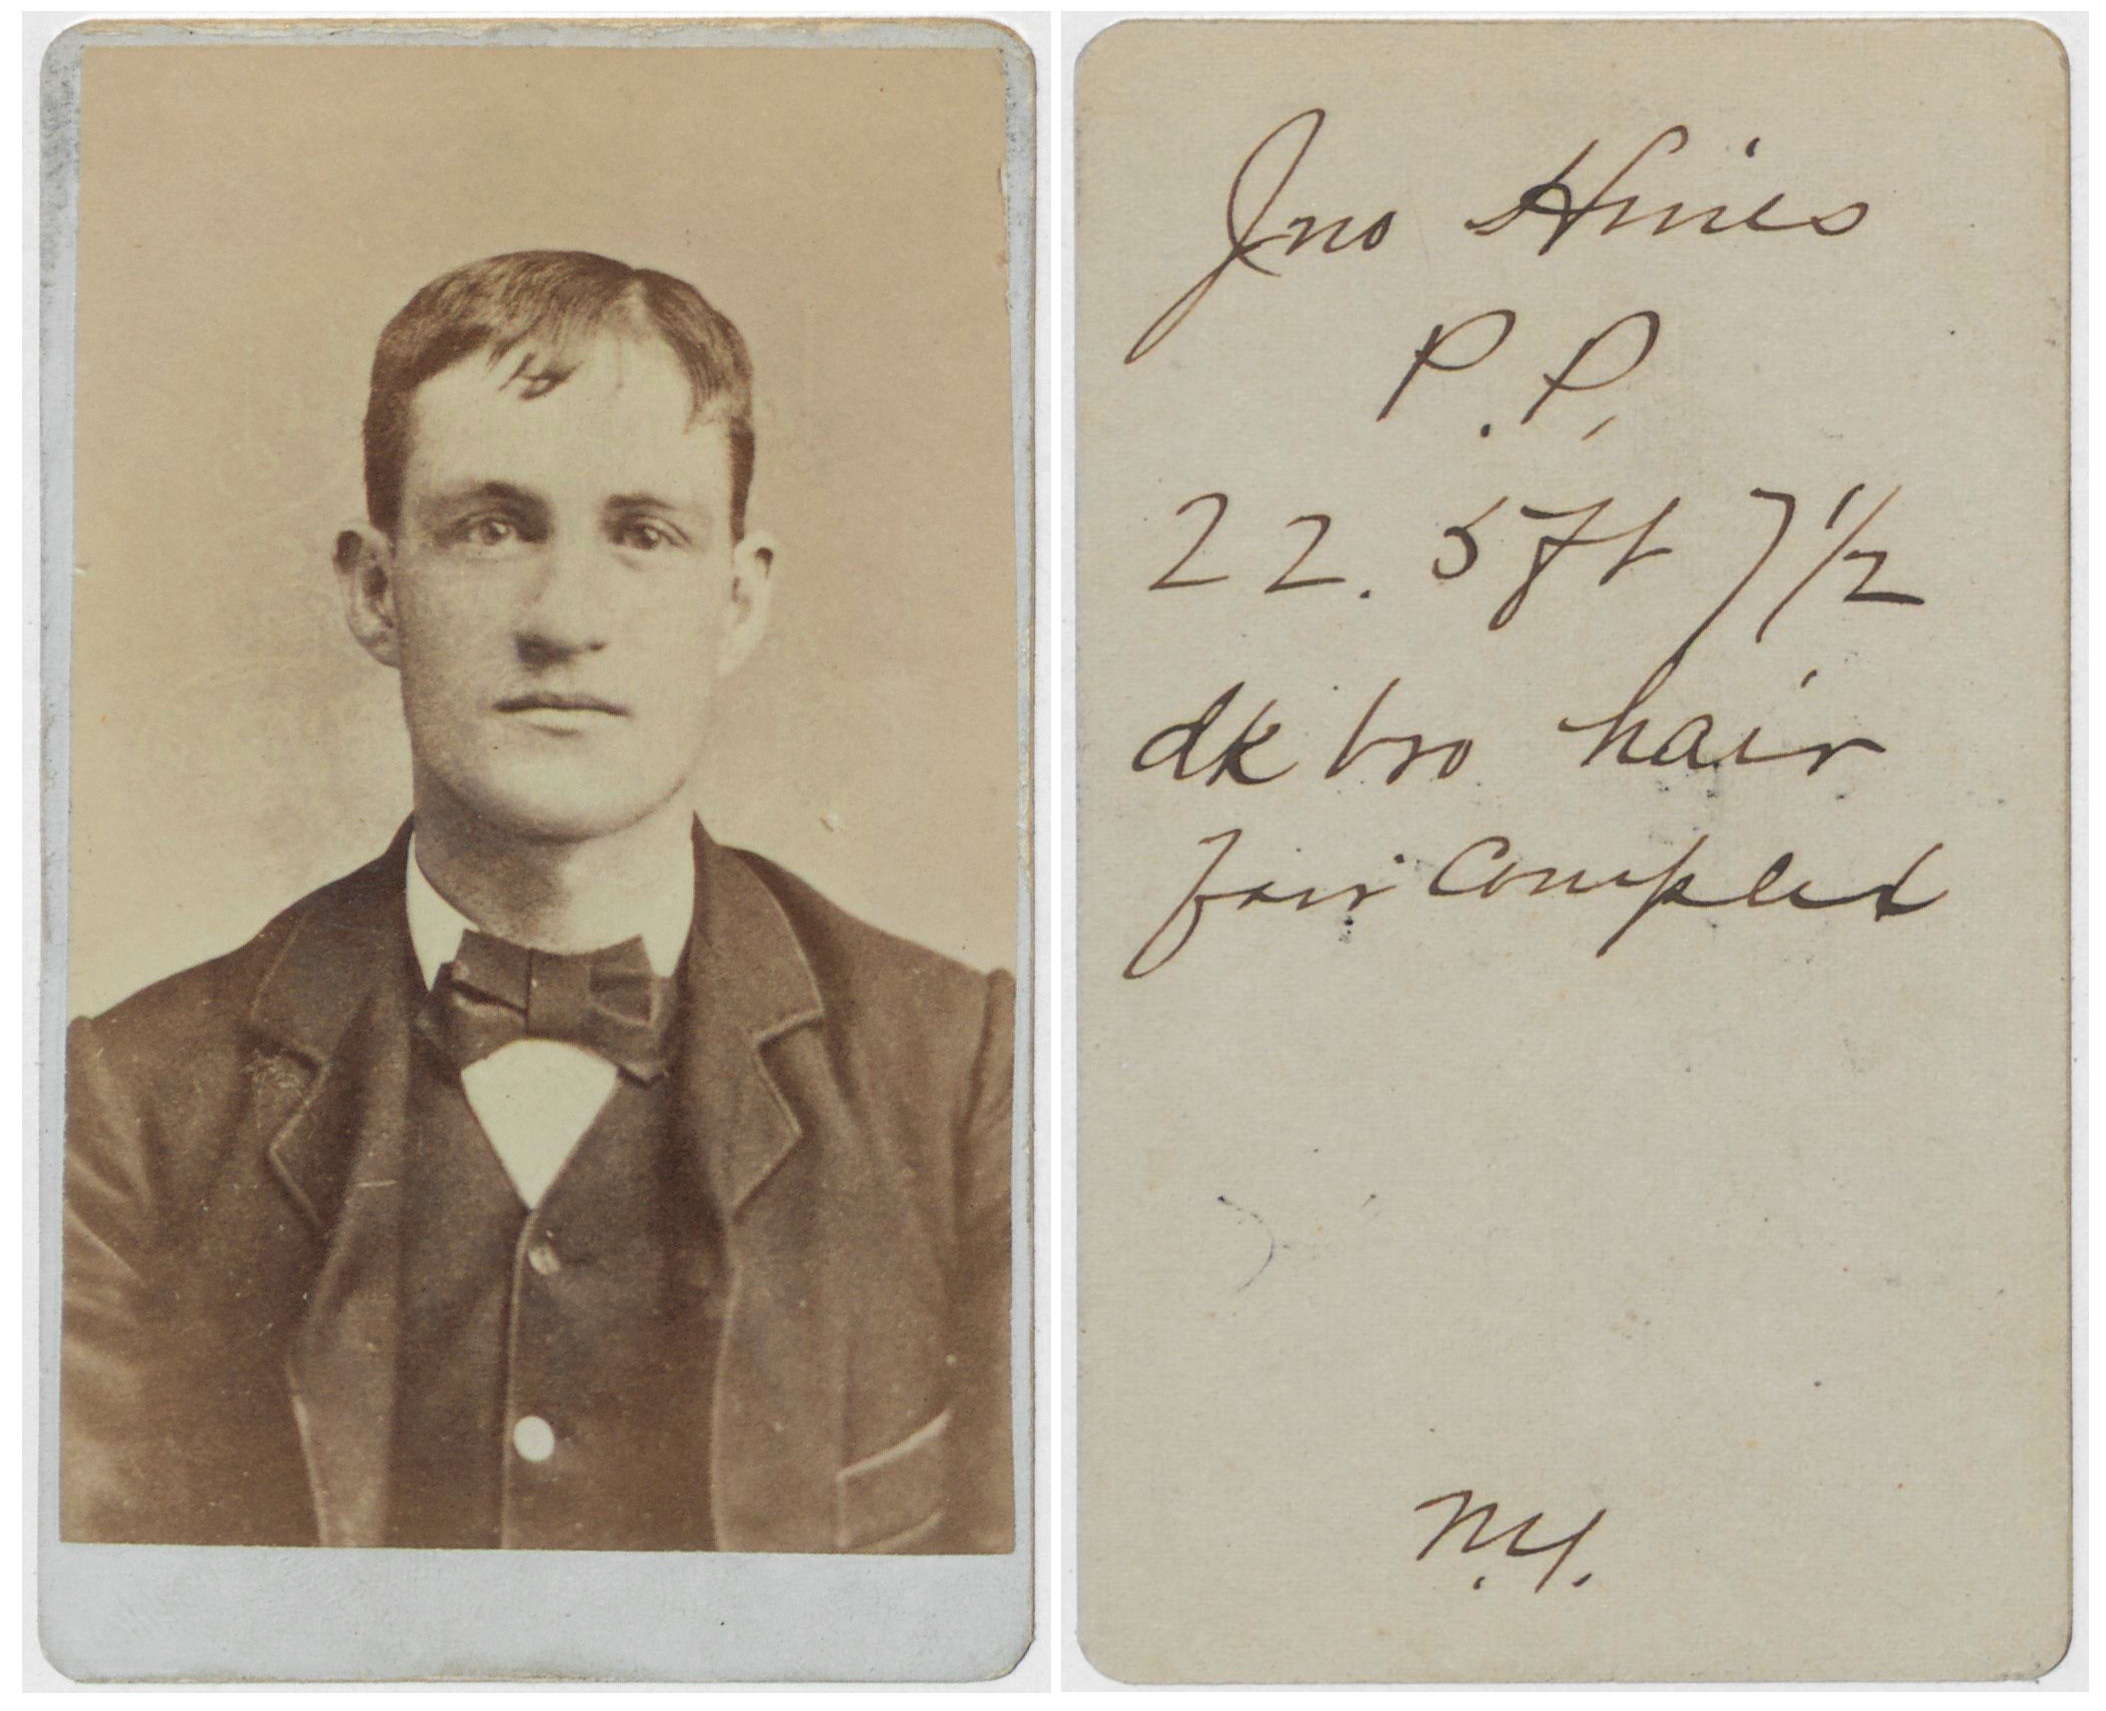 Jno Hines
P.P.
22. 5 ft 7 1/2
dk bro hair
fair Complex
N.Y.